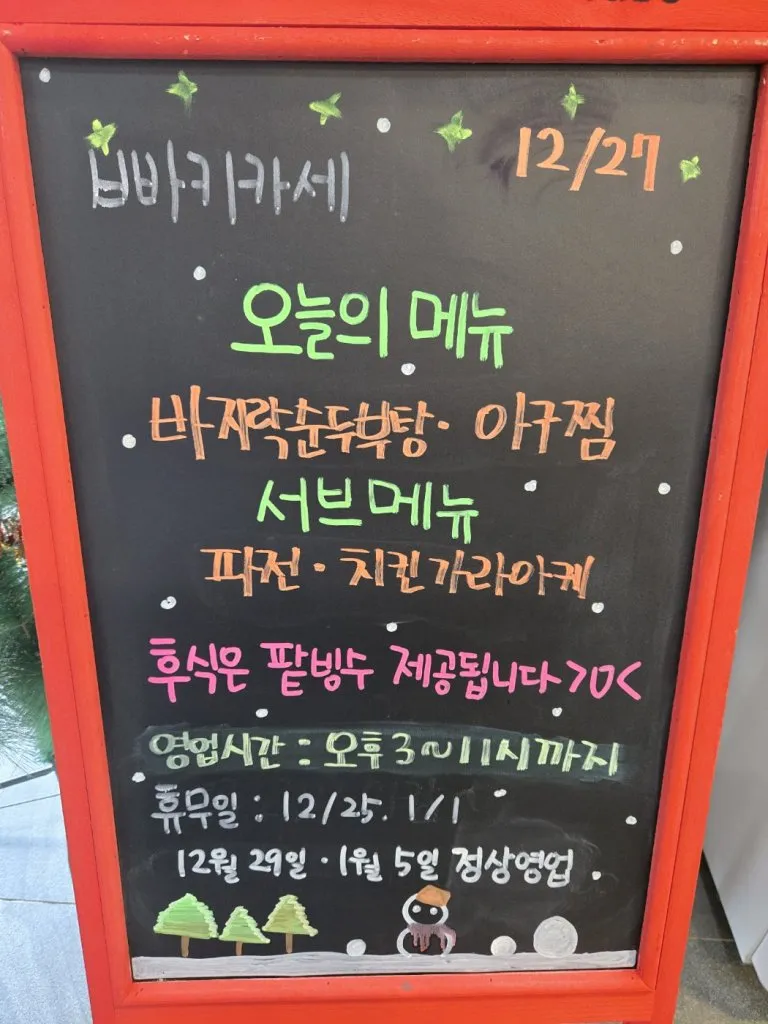 빠바키카세 12/27
오늘의 메뉴
바지락순두부탕· 아구찜
서브메뉴
파전 · 치킨가라아케
후식은 팥빙수 제공됩니다 >0<
영업시간 : 오후 3~11시까지
휴무일 : 12/25. 1/1
12월 29일 · 1월 5일 정상영업.